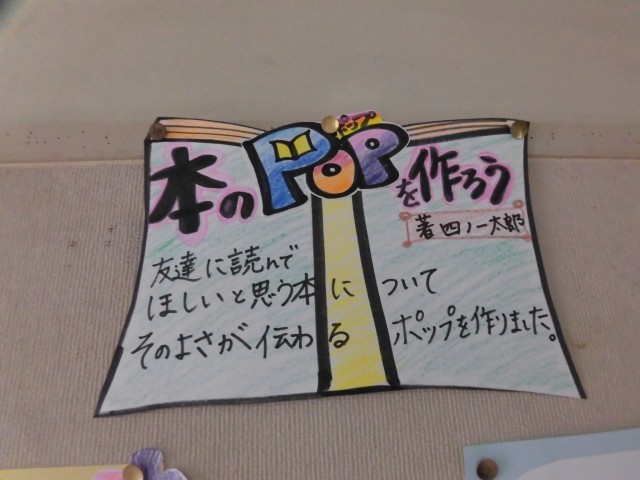 本のPOPを作ろう
ポップ
著四ノ一太郎
友達に読んで
ほしいと思う本について
そのよさが伝わるポップを作りました。